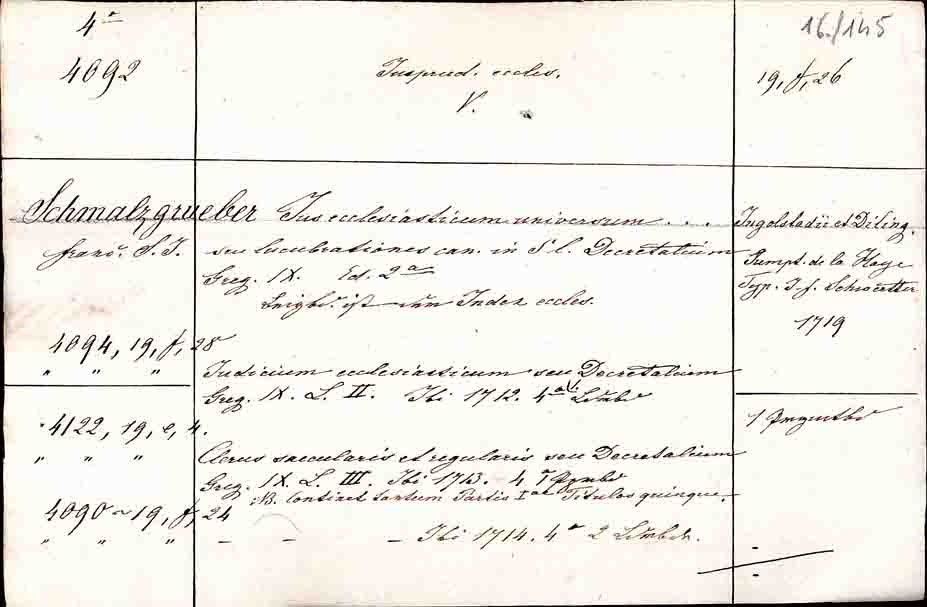 4ᵃ
16./145
4092
Jusprud. eccles.
19, f, 26
V.
Schmalzgrueber Jus ecclesiasticum universum . . .
Ingolstadii et Diling.
Franc. S. J.
seu lucubrationes can. in 5 l. Decretalium
Sumpt. de la Haye
Greg. IX. Ed. 2ᵃ
Typ. J. f. Schwertter
ist ein Index eccles.
1719
4094, 19, f, 28
" " "
Judicium ecclesiasticum seu Decretalium
Greg. IX. L. II. Ibi 1712. 4ᵃ
4122, 19, e, 4.
" " "
Clerus saecularis et regularis seu Decretalium
Greg. IX. L. III. Ibi 1713. 4
NB. Continet tantum Partis Iae Titulos quinque.
4090 ~ 19, f, 24
" " "
– – – Ibi 1714. 4ᵃ 2